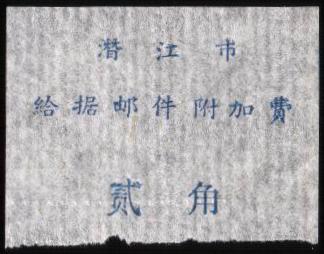 潛江市
給据邮件附加費
贰角